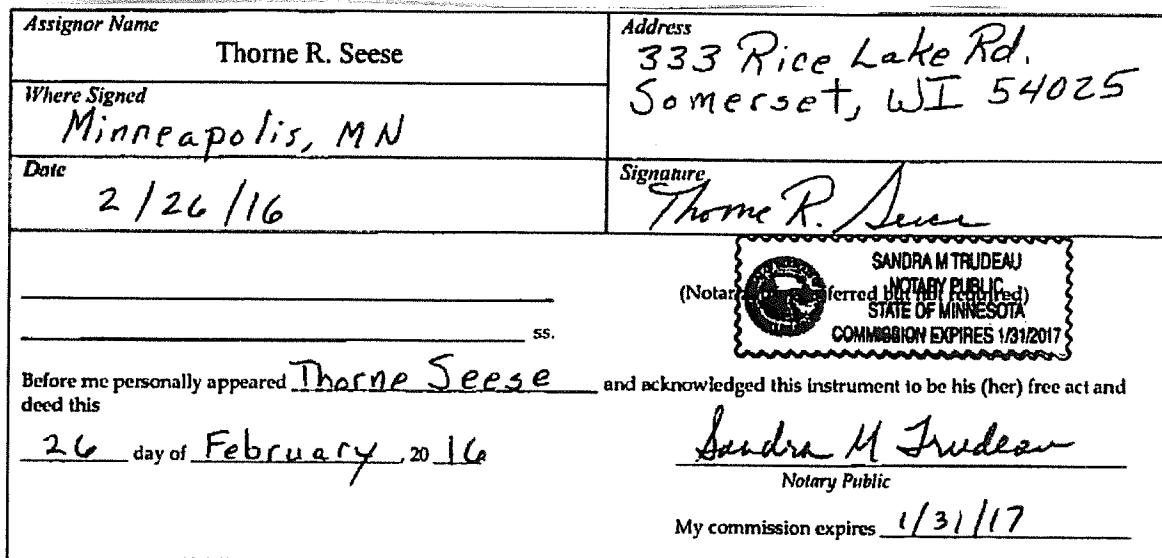 Assignor Name
Thorne R. Seese
Address
333 Rice Lake Rd.
Somerset, WI 54025
Where Signed
Minneapolis, MN
Date
2/26/16
Signature
Thorne R. Seese
SANDRA M TRUDEAU
NOTARY PUBLIC
STATE OF MINNESOTA
COMMISSION EXPIRES 1/31/2017
(Notar ferred but not required)
ss.
Before me personally appeared Thorne Seese and acknowledged this instrument to be his (her) free act and
deed this
26 day of February, 20 16
Sandra M Trudeau
Notary Public
My commission expires 1/31/17